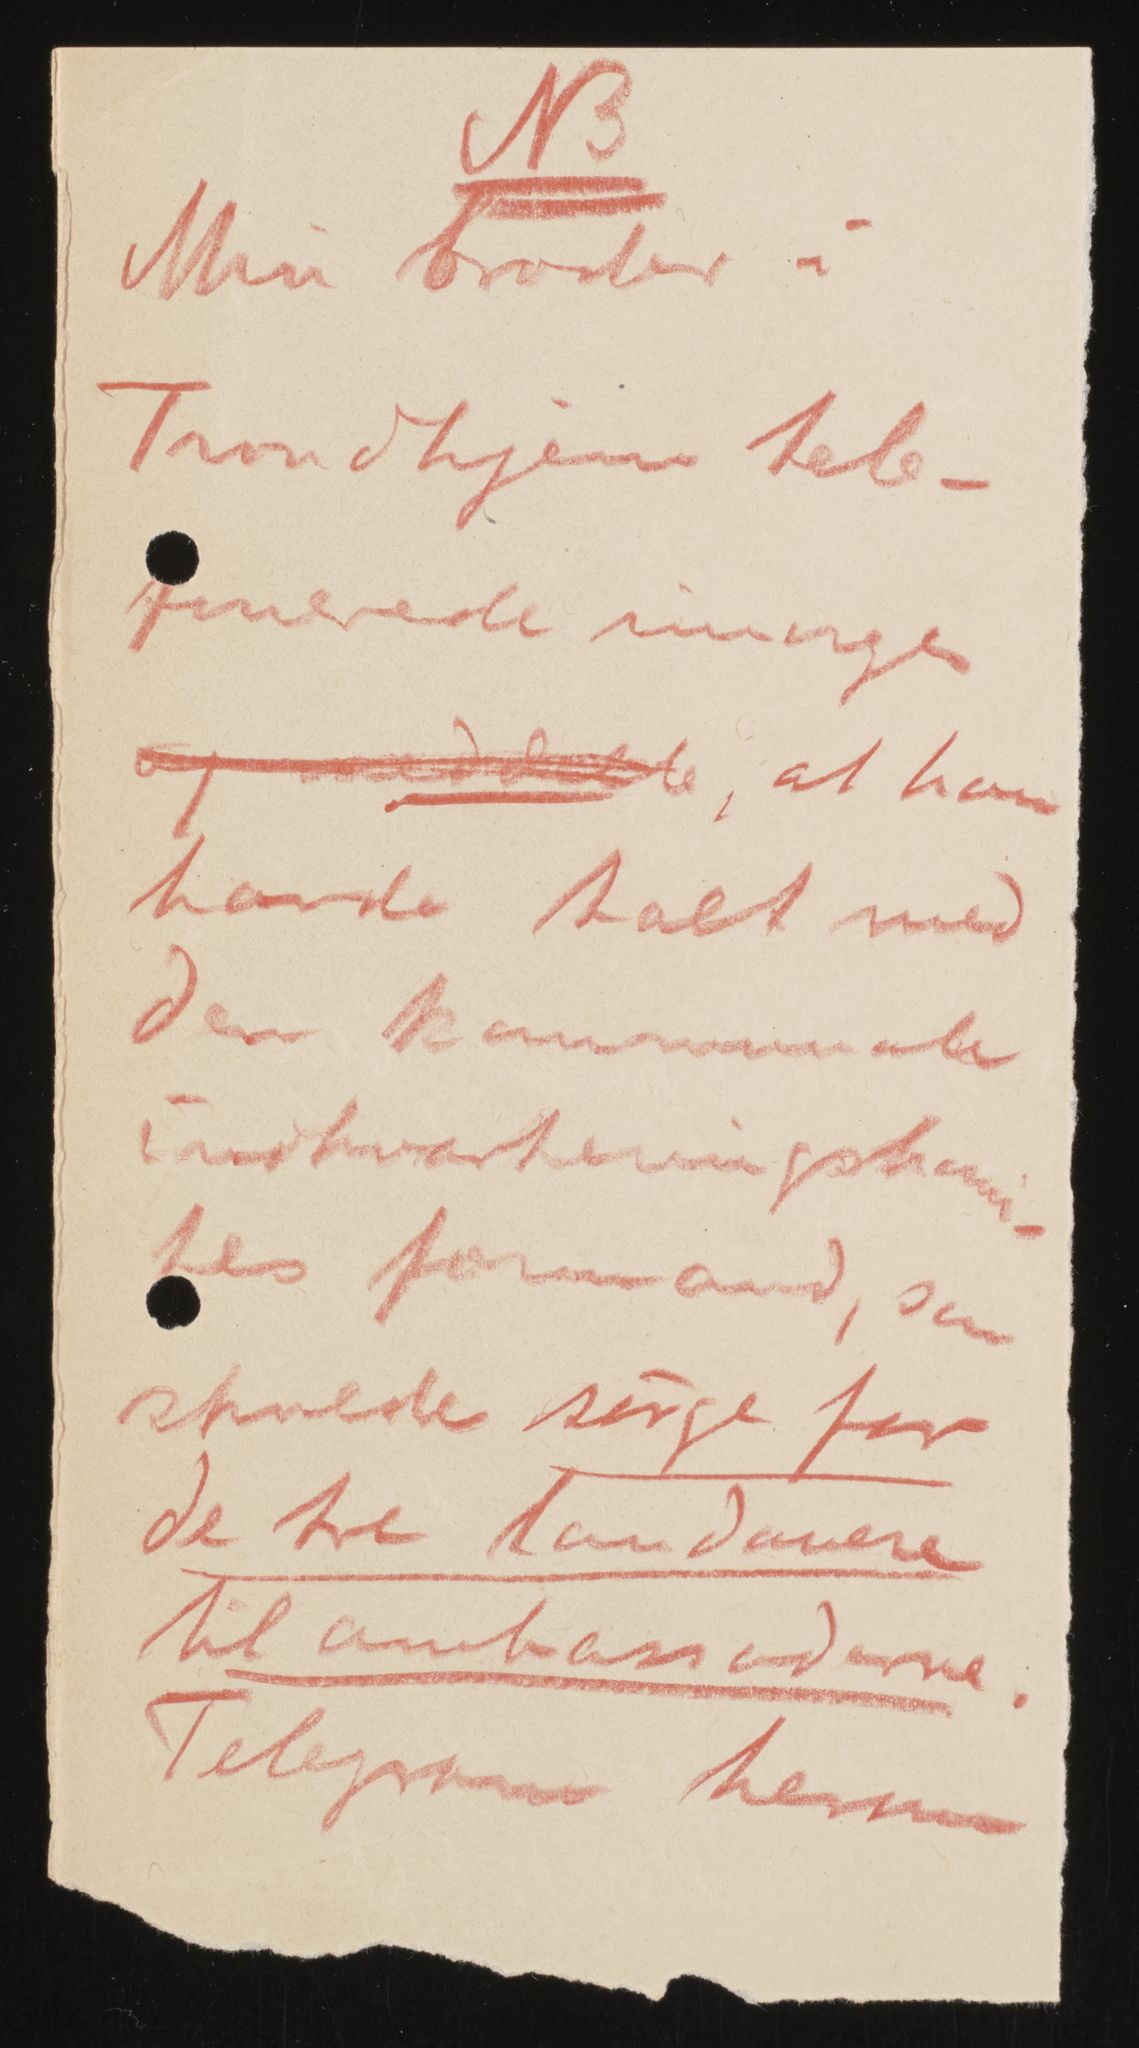 NB
Min broder i
Trondhjem tele-
fonerede imorges
og meddelte, at han
havde talt med
den kommunale
indkvarteringskomi-
tes formand, som
skulde sørge for
de tre landauere
til ambassadørerne.
Telegram herom